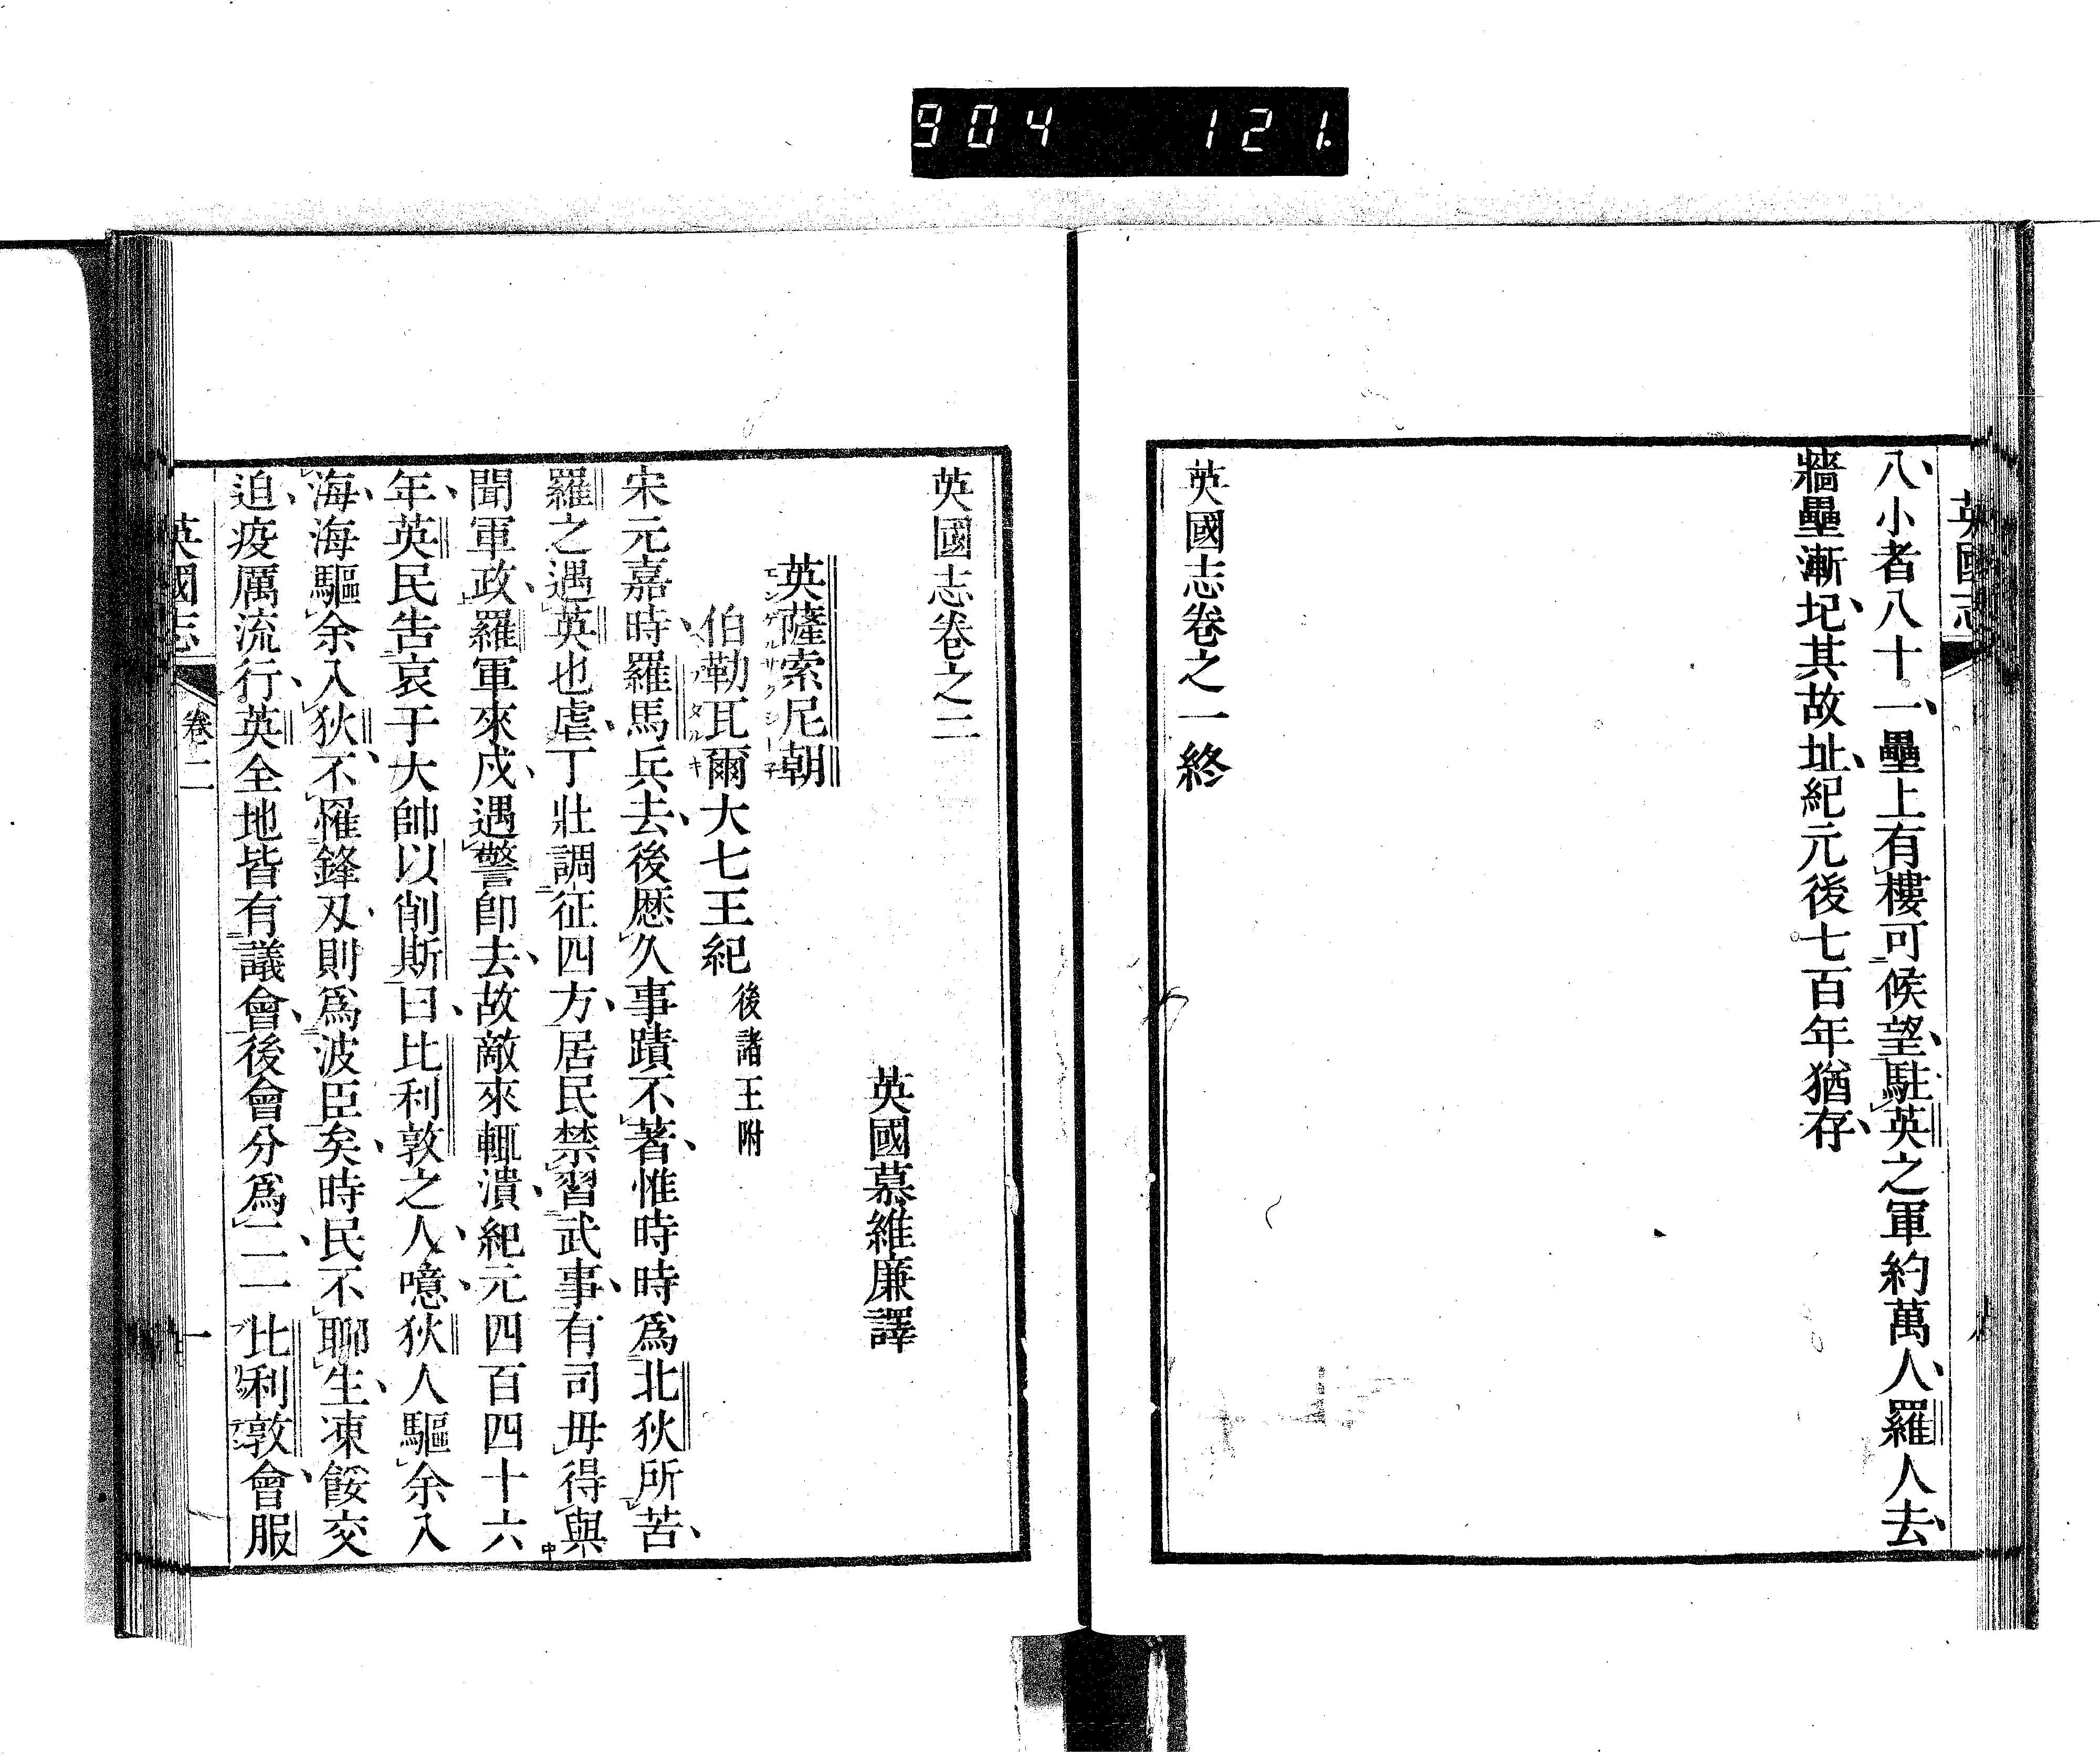 904 121.
英國志
八、小者八十。一、壘上有樓可候望、駐英之軍約萬人、羅人去、
牆壘漸圮、其故址、紀元後七百年猶存、
英國志卷之一終
英國志卷之二
英國慕維廉譯
英薩索尼朝
伯勒瓦爾大七王紀 後諸王附
宋元嘉時、羅馬兵去、後歷久事蹟不著、惟時時爲北狄所苦、
羅之遇英也虐、丁壯調征四方、居民禁習武事、有司毋得與
聞軍政、羅軍來戍、遇警卽去、故敵來輒潰、紀元四百四十六
年、英民告哀于大帥以削斯曰、比利敦之人、噫、狄人驅余入
海、海驅余入狄、不罹鋒刄、則爲波臣矣、時民不聊生、凍餒交
迫、疫厲流行、英全地皆有議會、後會分爲二、一比利敦會、服
英國志 卷二 一